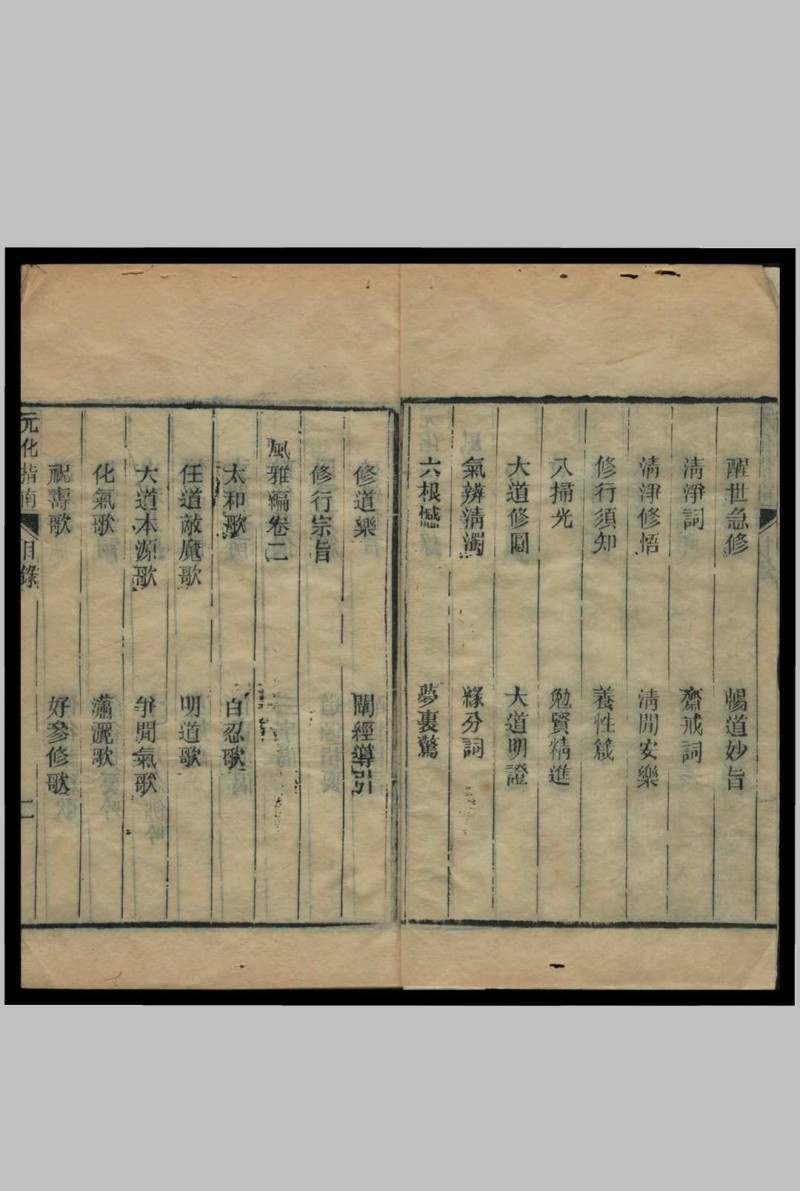 醒世急修　暢道妙旨
清淨詞　齋戒詞
清淨修悟　清閒安樂
修行須知　養性箴
八掃光　勉賢精進
大道修圓　大道明證
氣辨清濁　緣分詞
六根憾　夢裏驚
修道樂　闡經導引
修行宗旨
風雅編卷二
太和歌　百忍歌
任道敵魔歌　明道歌
大道本源歌　爭閒氣歌
化氣歌　瀟灑歌
祝壽歌　好參修歌
元化指南　目錄　二